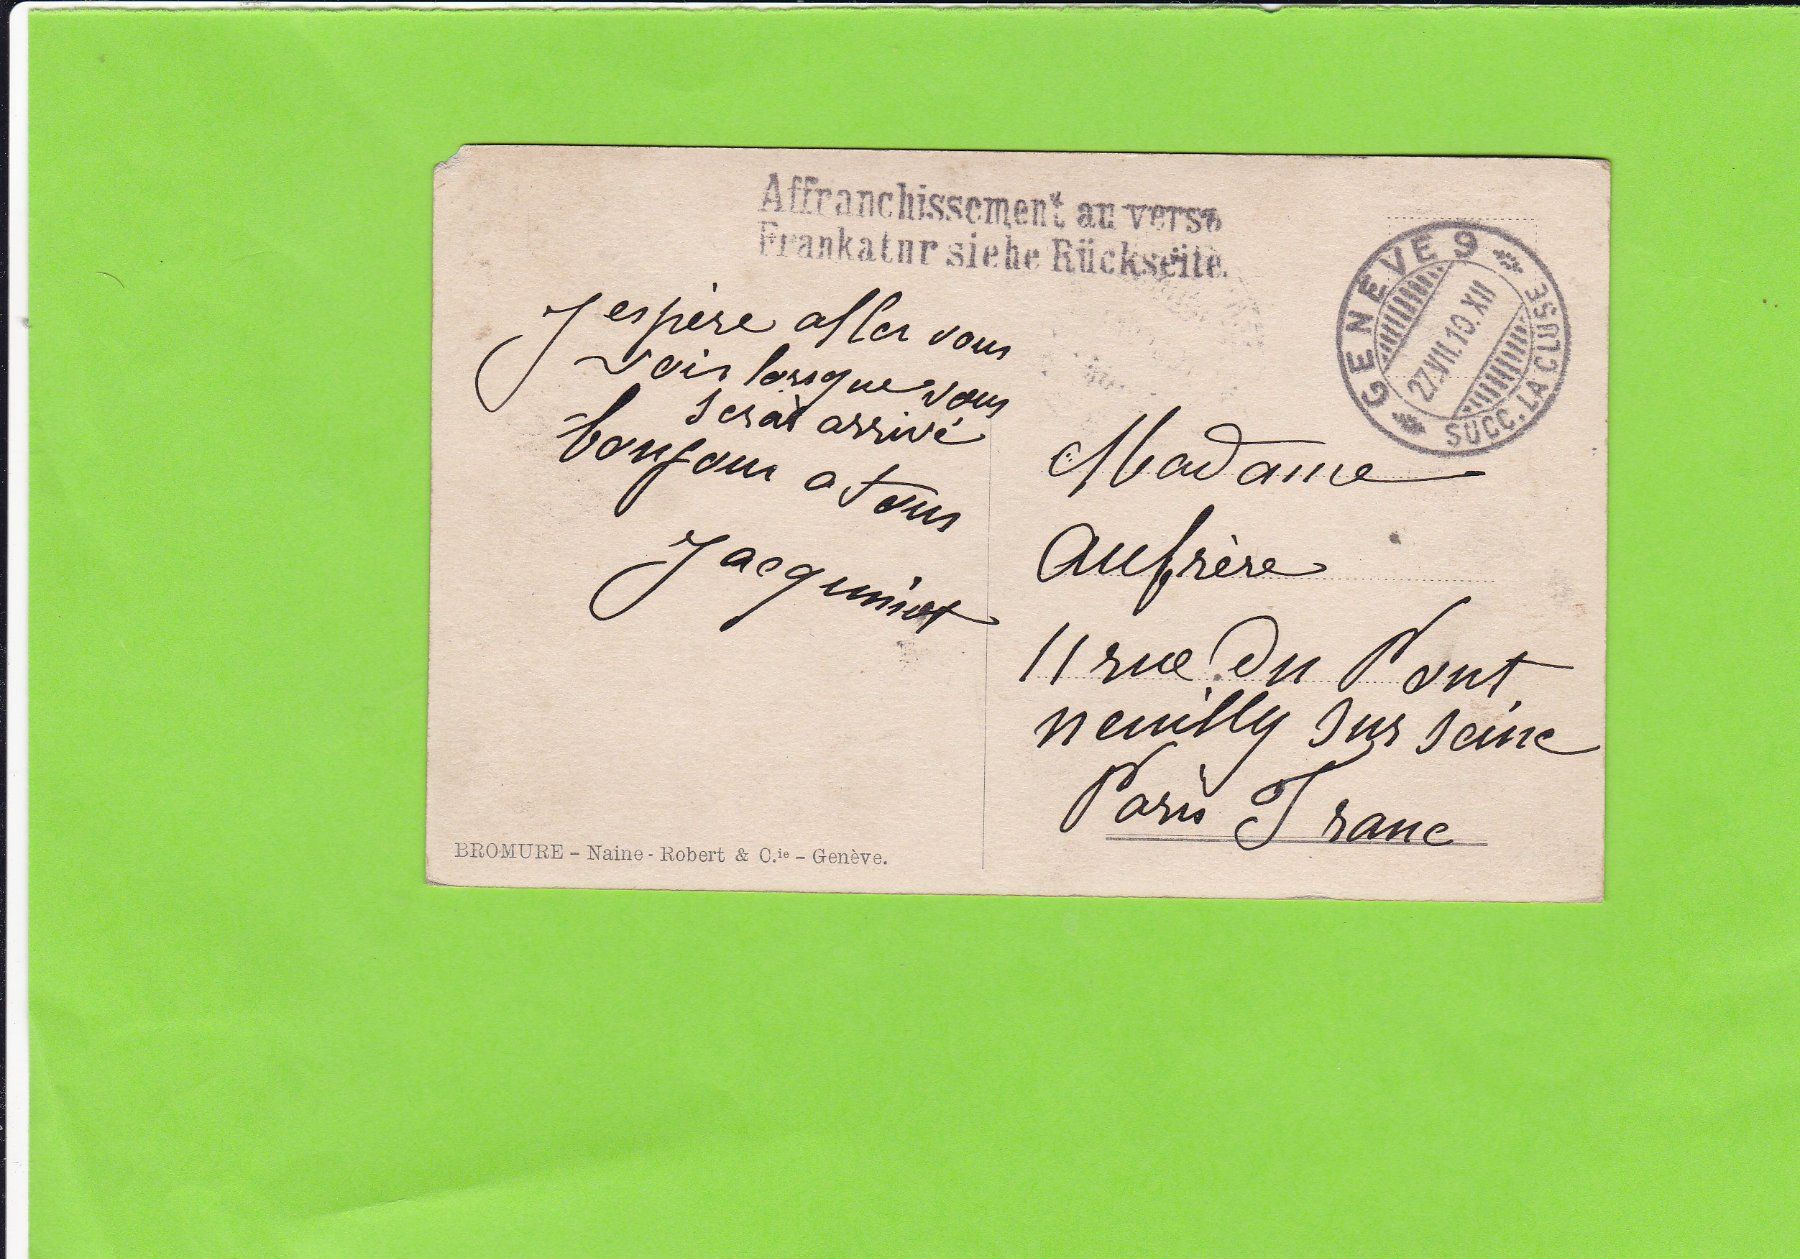 Affranchissement au verso
Frankatur siehe Rückseite.
GENÈVE 9
27.VII.10.XII
SUCC. LA CLUSE
J espère aller vous
voir lorsque vous
serat arrivé
bonjour a tous
Jacquinot
Madame
Aufrère
11 rue du Pont
neuilly sur seine
Paris Franc
BROMURE - Naine - Robert & C.ie - Genève.